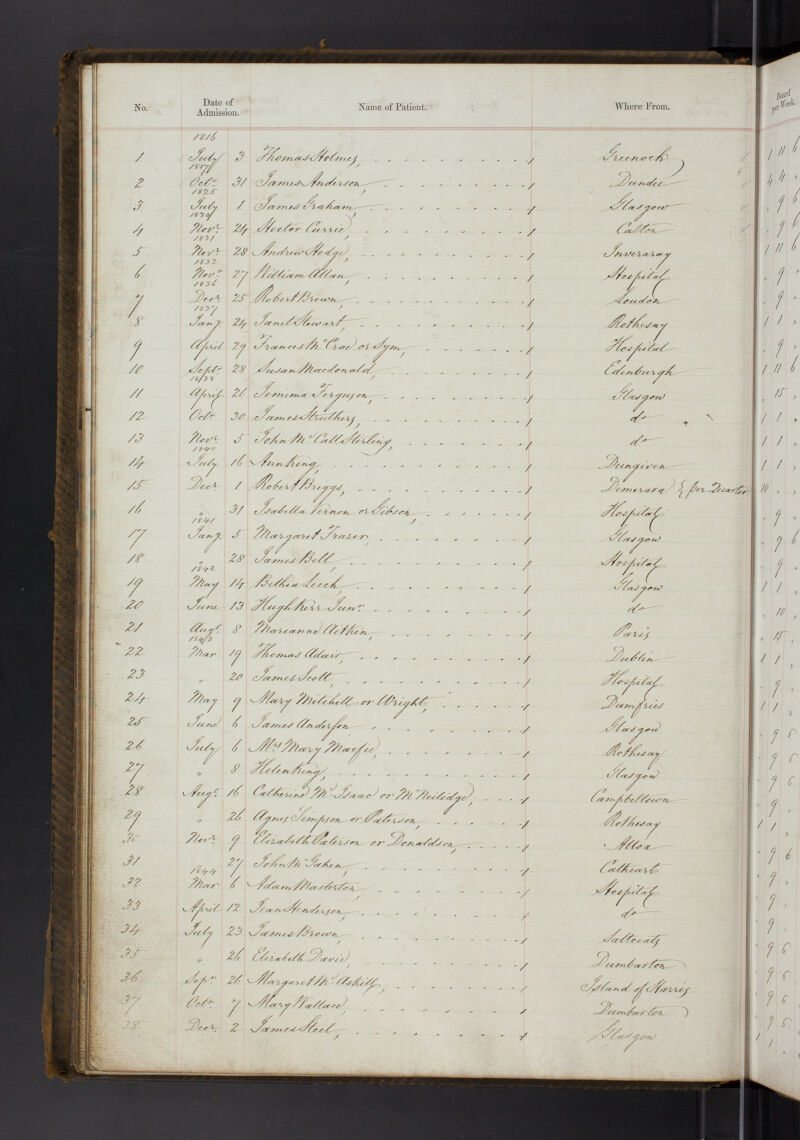 No. Date of Admission. Name of Patient. Where From. Board per Week.
1816
1 July 3 Thomas Holmes, Greenock 1 11 6
1817
2 Octr 31 James Anderson, Dundee 4 4 "
1825
3 July 1 James Graham, Glasgow " 9 6
1829
4 Novr 24 Hector Currie, Calton " 9 6
1831
5 Novr 28 Andrew Hodge, Inveraray 1 11 6
1832
6 Novr 27 William Allan, Hospital " 9 "
1836
7 Decr 25 Robert Brown, London " 9 "
1837
8 Jany 24 Janet Stewart, Rothesay 1 1 "
9 April 29 Frances McCrae or Sym, Hospital " 9 "
10 Septr 28 Susan Macdonald, Edinburgh 1 11 6
1838
11 April 26 Jemima Ferguson, Glasgow " 15 "
12 Octr 30 James Struthers, do 1 1 "
13 Novr 5 John McCall Stirling, do 1 1 "
1840
14 July 16 Ann King, Dungiven 1 1 "
15 Decr 1 Robert Briggs, Demerara { per Quarter 10 " "
16 " 31 Isabella Vernon or Gibson, Hospital " 9 "
1841
17 Jany 5 Margaret Frazer, Glasgow " 9 6
18 " 28 James Bell, Hospital " 9 "
1842
19 May 14 Bethia Leech, Glasgow 1 1 "
20 June 13 Hugh Kerr Junr do " 10 "
21 Augt 8 Mareanne Aitken, Paris " 15 "
1843
22 Mar 19 Thomas Adair, Dublin 1 1 "
23 " 20 James Scott, Hospital " 9 "
24 May 9 Mary Mitchell or Wright, Dumfries 1 1 "
25 June 6 James Anderson Glasgow " 9 6
26 July 6 Mrs Mary Macfie, Rothesay " 9 6
27 " 8 Helen King, Glasgow " 9 6
28 Augt 16 Catherine McIsaac or McNeilidge, Campbeltown " 9 "
29 " 26 Agnes Simpson or Paterson, Rothesay 1 1 "
30 Novr 9 Elizabeth Paterson or Donaldson, Alloa " 9 6
31 27 John McGichen, Cathcart " 9 "
1844
32 Mar 6 Adam Masterton, Hospital " 9 "
33 April 12 Jean Henderson, do " 9 "
34 July 23 James Brown, Saltcoats " 9 6
35 " 26 Elizabeth David, Dumbarton " 9 6
36 Sepr 26 Margaret McAskill, Island of Harris " 9 6
37 Octr 7 Mary Wallace, Dumbarton " 9 6
38 Decr 2 James Steel, Glasgow 1 1 "